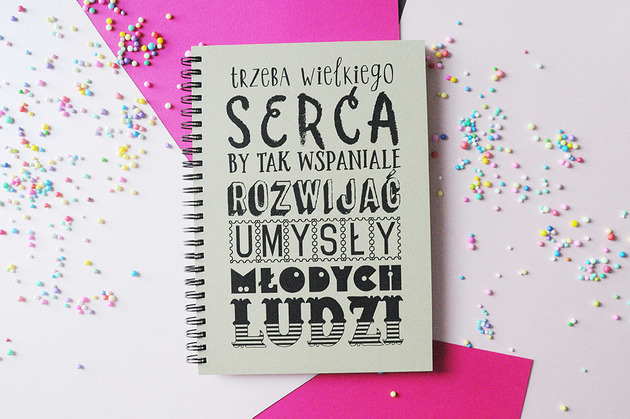 trzeba wielkiego
SERCA
BY TAK WSPANIALE
ROZWIJAĆ
UMYSŁY
MŁODYCH
LUDZI